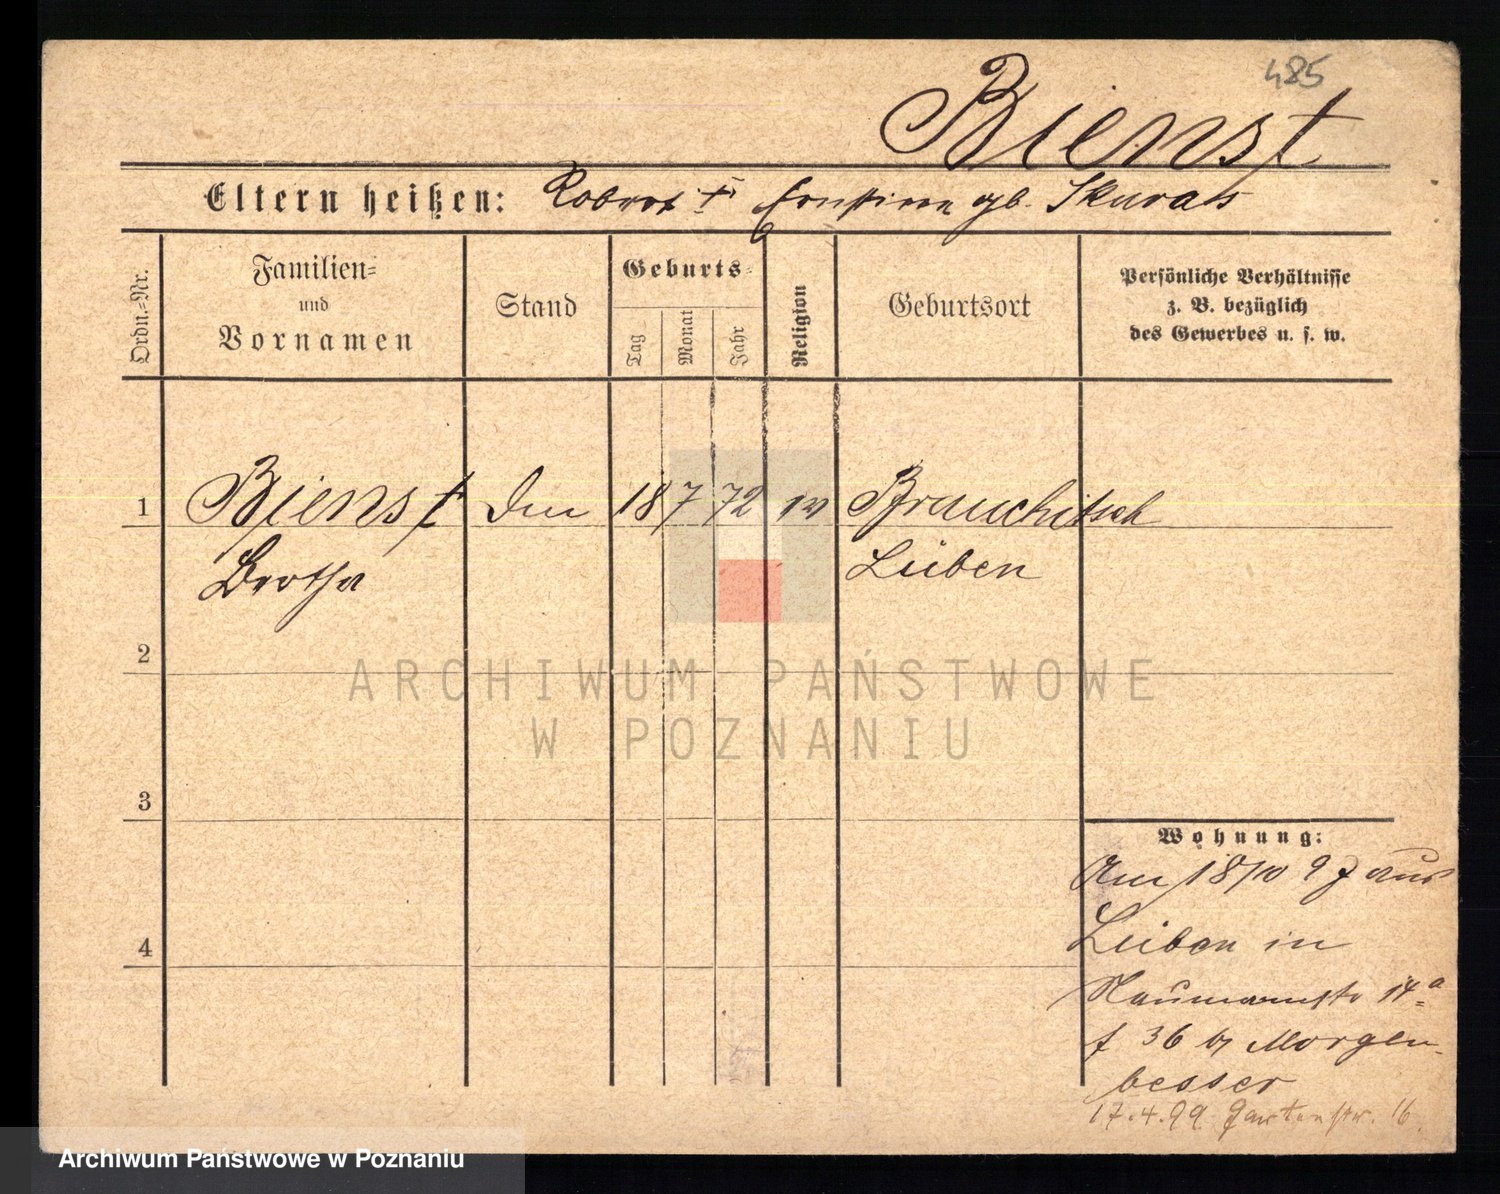 485
Bienst
Eltern heißen: Robert † Ernstine gb. Skurats
Ordn.=Nr.
Familien=
und
Vornamen
Stand
Geburts=
Tag
Monat
Jahr
Religion
Geburtsort
Persönliche Verhältnisse
z. B. bezüglich
des Gewerbes u. s. w.
1 Bienst 18 7 72 Brauchitsch
Bertha Lüben
2
3
4
Wohnung:
Am 18/10 97 aus
Lüben in
Naumannstr 14a
f 36 b/ Morgen-
besser
17.4.99. Gartenstr. 16.
ARCHIWUM PAŃSTWOWE
W POZNANIU
Archiwum Państwowe w Poznaniu